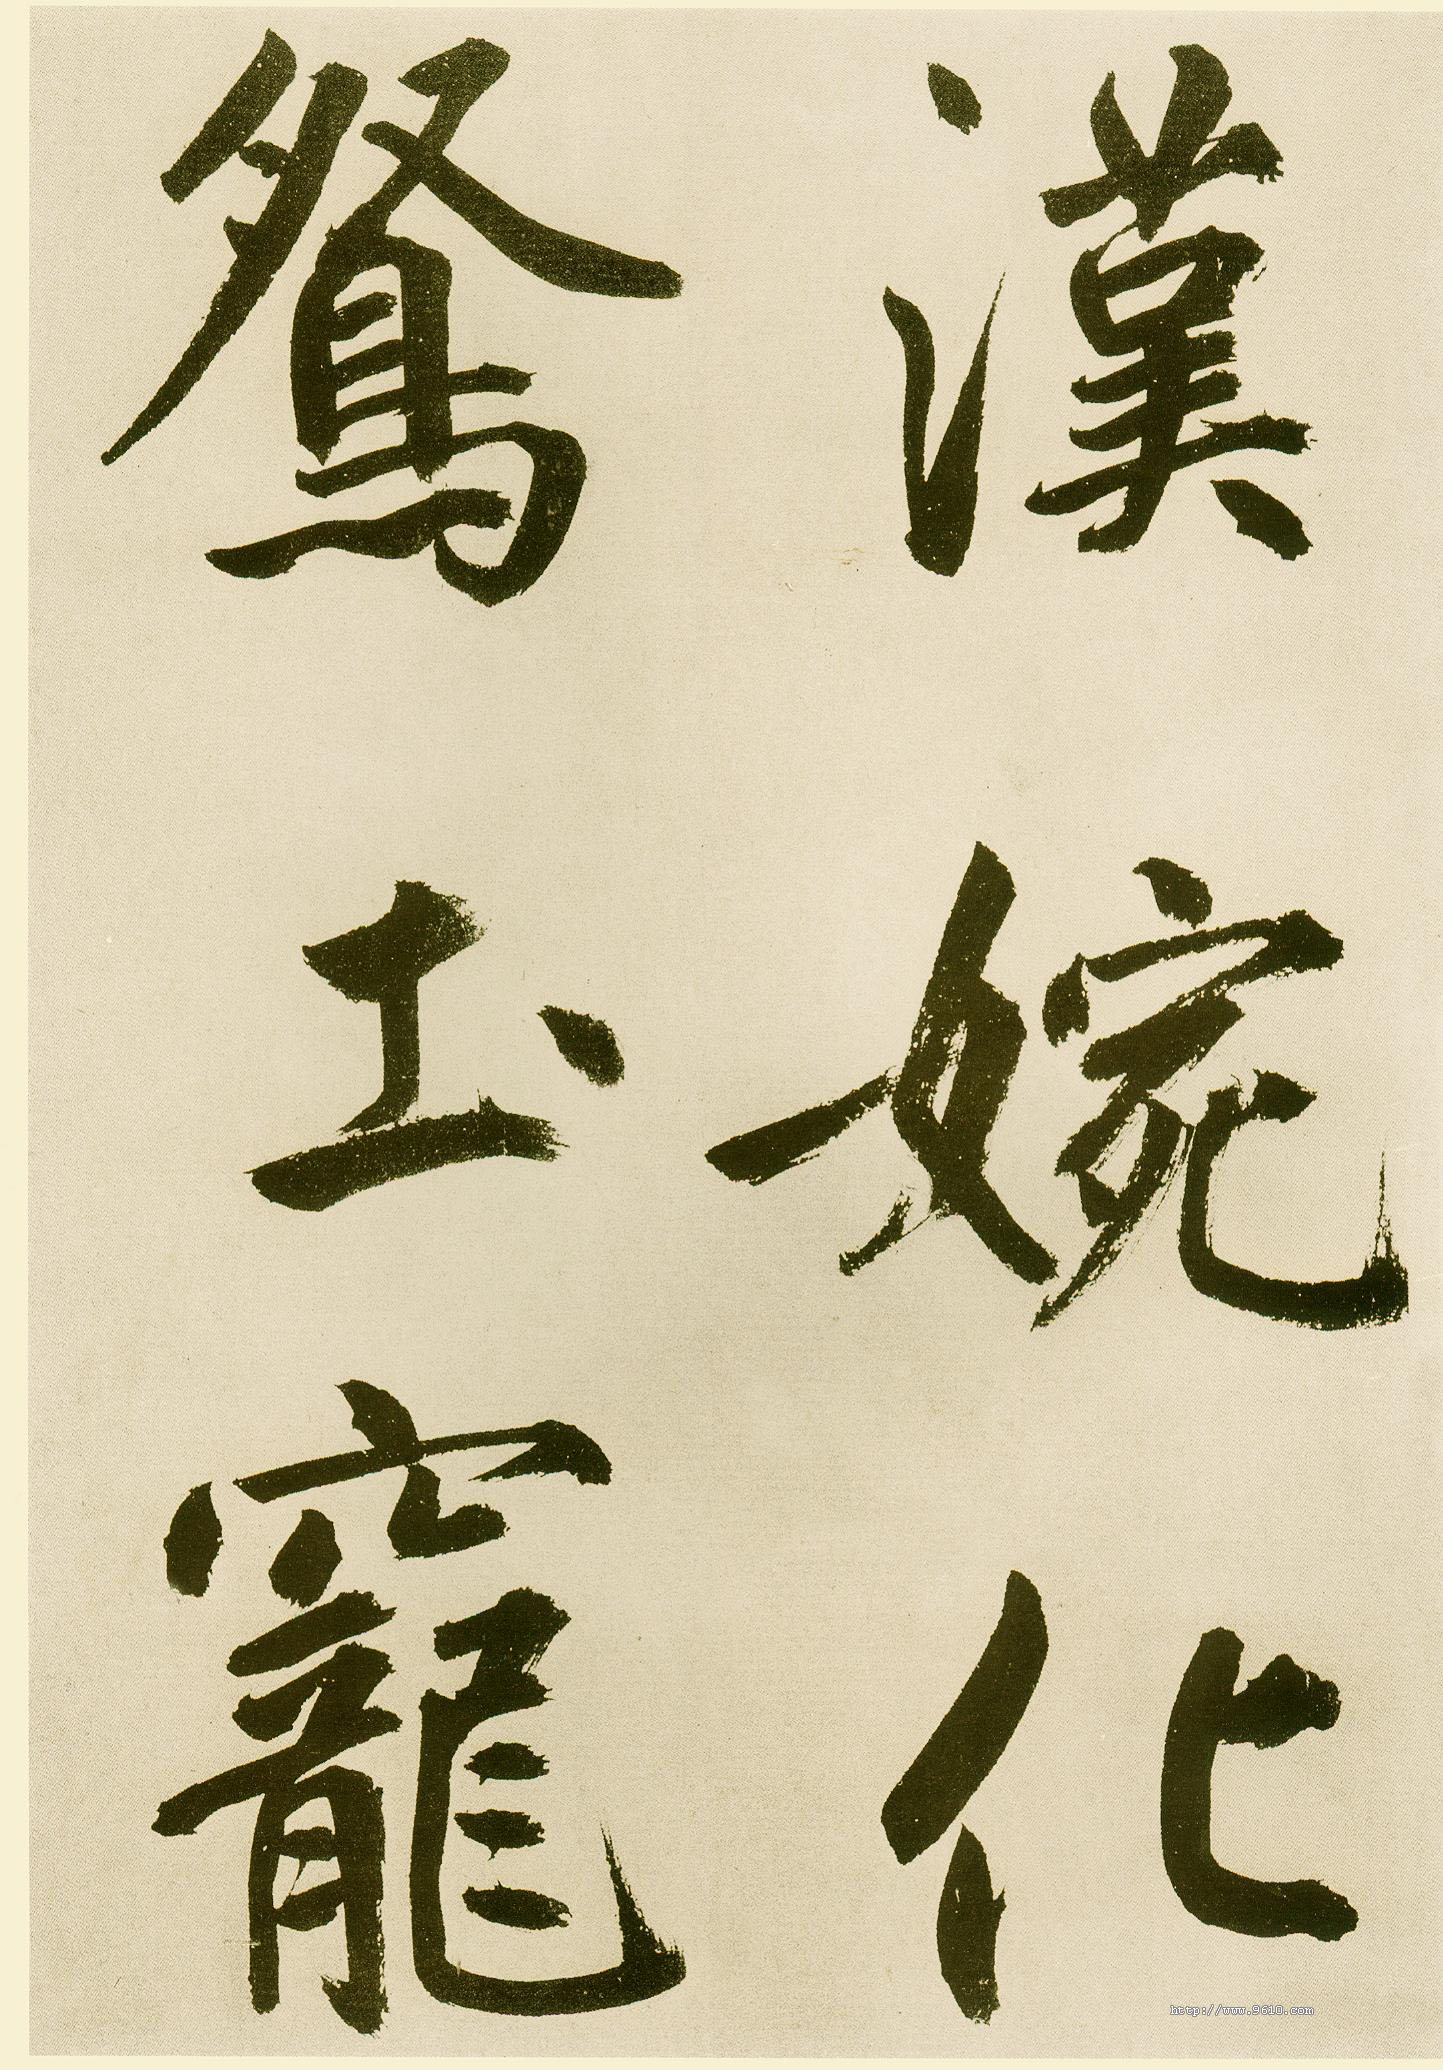 漢婉化
鴛圡竉
http://www.9610.com